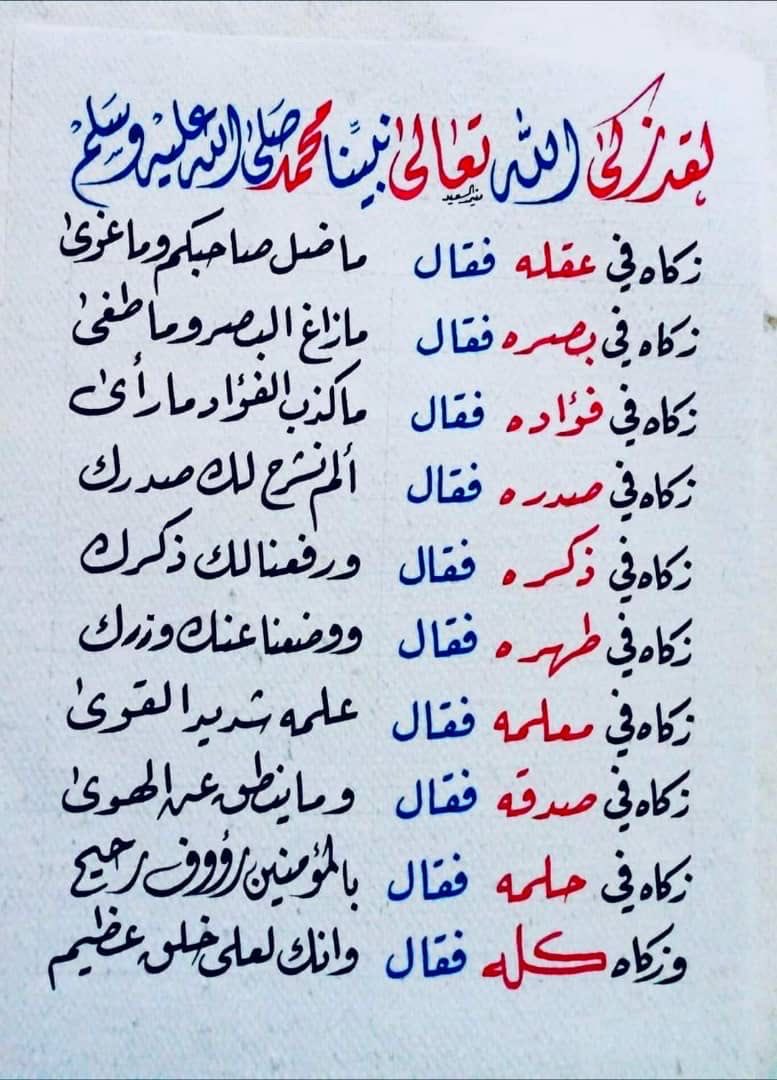 لقد زكى الله تعالى نبينا محمد صلى الله عليه وسلم
منير السعيد
زكاه في عقله فقال ما ضل صاحبكم وما غوى
زكاه في بصره فقال ما زاغ البصر وما طغى
زكاه في فؤاده فقال ما كذب الفؤاد ما رأى
زكاه في صدره فقال ألم نشرح لك صدرك
زكاه في ذكره فقال ورفعنا لك ذكرك
زكاه في طهره فقال ووضعنا عنك وزرك
زكاه في معلمه فقال علمه شديد القوى
زكاه في صدقه فقال وما ينطق عن الهوى
زكاه في حلمه فقال بالمؤمنين رؤوف رحيم
وزكاه كله فقال وانك لعلى خلق عظيم